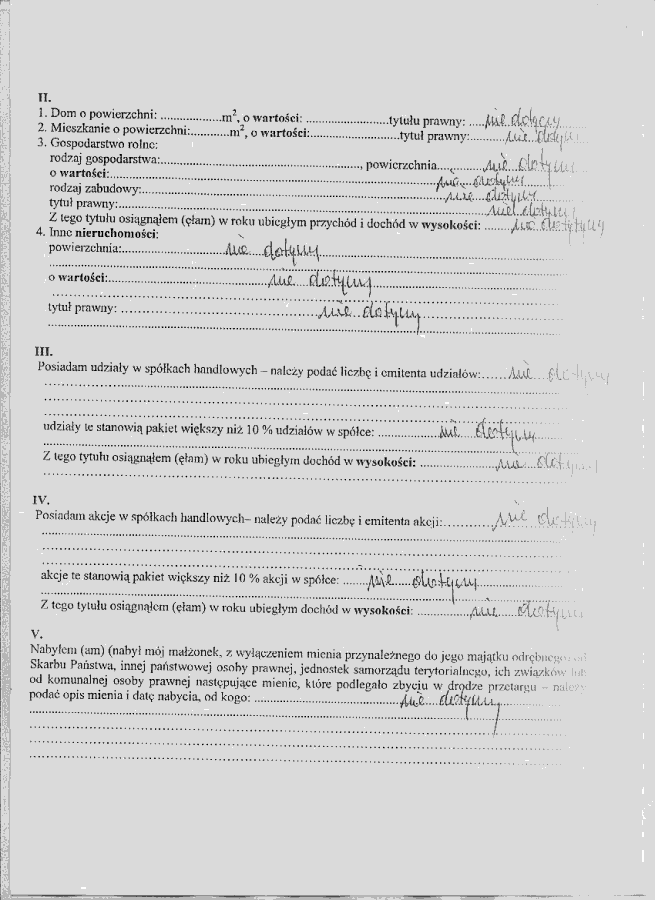 II.
1. Dom o powierzchni: ....................m², o wartości: ...........................tytułu prawny: .....nie dotyczy
2. Mieszkanie o powierzchni:............m², o wartości:...........................tytuł prawny:..........nie dotyczy
3. Gospodarstwo rolne:
rodzaj gospodarstwa:................................................................, powierzchnia.............nie dotyczy
o wartości:.....................................................................nie dotyczy
rodzaj zabudowy:.....................................................................nie dotyczy
tytuł prawny:.....................................................................nie dotyczy
Z tego tytułu osiągnąłem (ęłam) w roku ubiegłym przychód i dochód w wysokości: ........nie dotyczy
4. Inne nieruchomości:
powierzchnia:..........................nie dotyczy
o wartości:..........................nie dotyczy
tytuł prawny: ..........................nie dotyczy
III.
Posiadam udziały w spółkach handlowych – należy podać liczbę i emitenta udziałów:.......nie dotyczy
udziały te stanowią pakiet większy niż 10 % udziałów w spółce: ................nie dotyczy
Z tego tytułu osiągnąłem (ęłam) w roku ubiegłym dochód w wysokości: ................nie dotyczy
IV.
Posiadam akcje w spółkach handlowych– należy podać liczbę i emitenta akcji:.............nie dotyczy
akcje te stanowią pakiet większy niż 10 % akcji w spółce: ......nie dotyczy
Z tego tytułu osiągnąłem (ęłam) w roku ubiegłym dochód w wysokości: .............nie dotyczy
V.
Nabyłem (am) (nabył mój małżonek, z wyłączeniem mienia przynależnego do jego majątku odrębnego) od
Skarbu Państwa, innej państwowej osoby prawnej, jednostek samorządu terytorialnego, ich związków lub
od komunalnej osoby prawnej następujące mienie, które podlegało zbyciu w drodze przetargu – należy
podać opis mienia i datę nabycia, od kogo: ....................................nie dotyczy